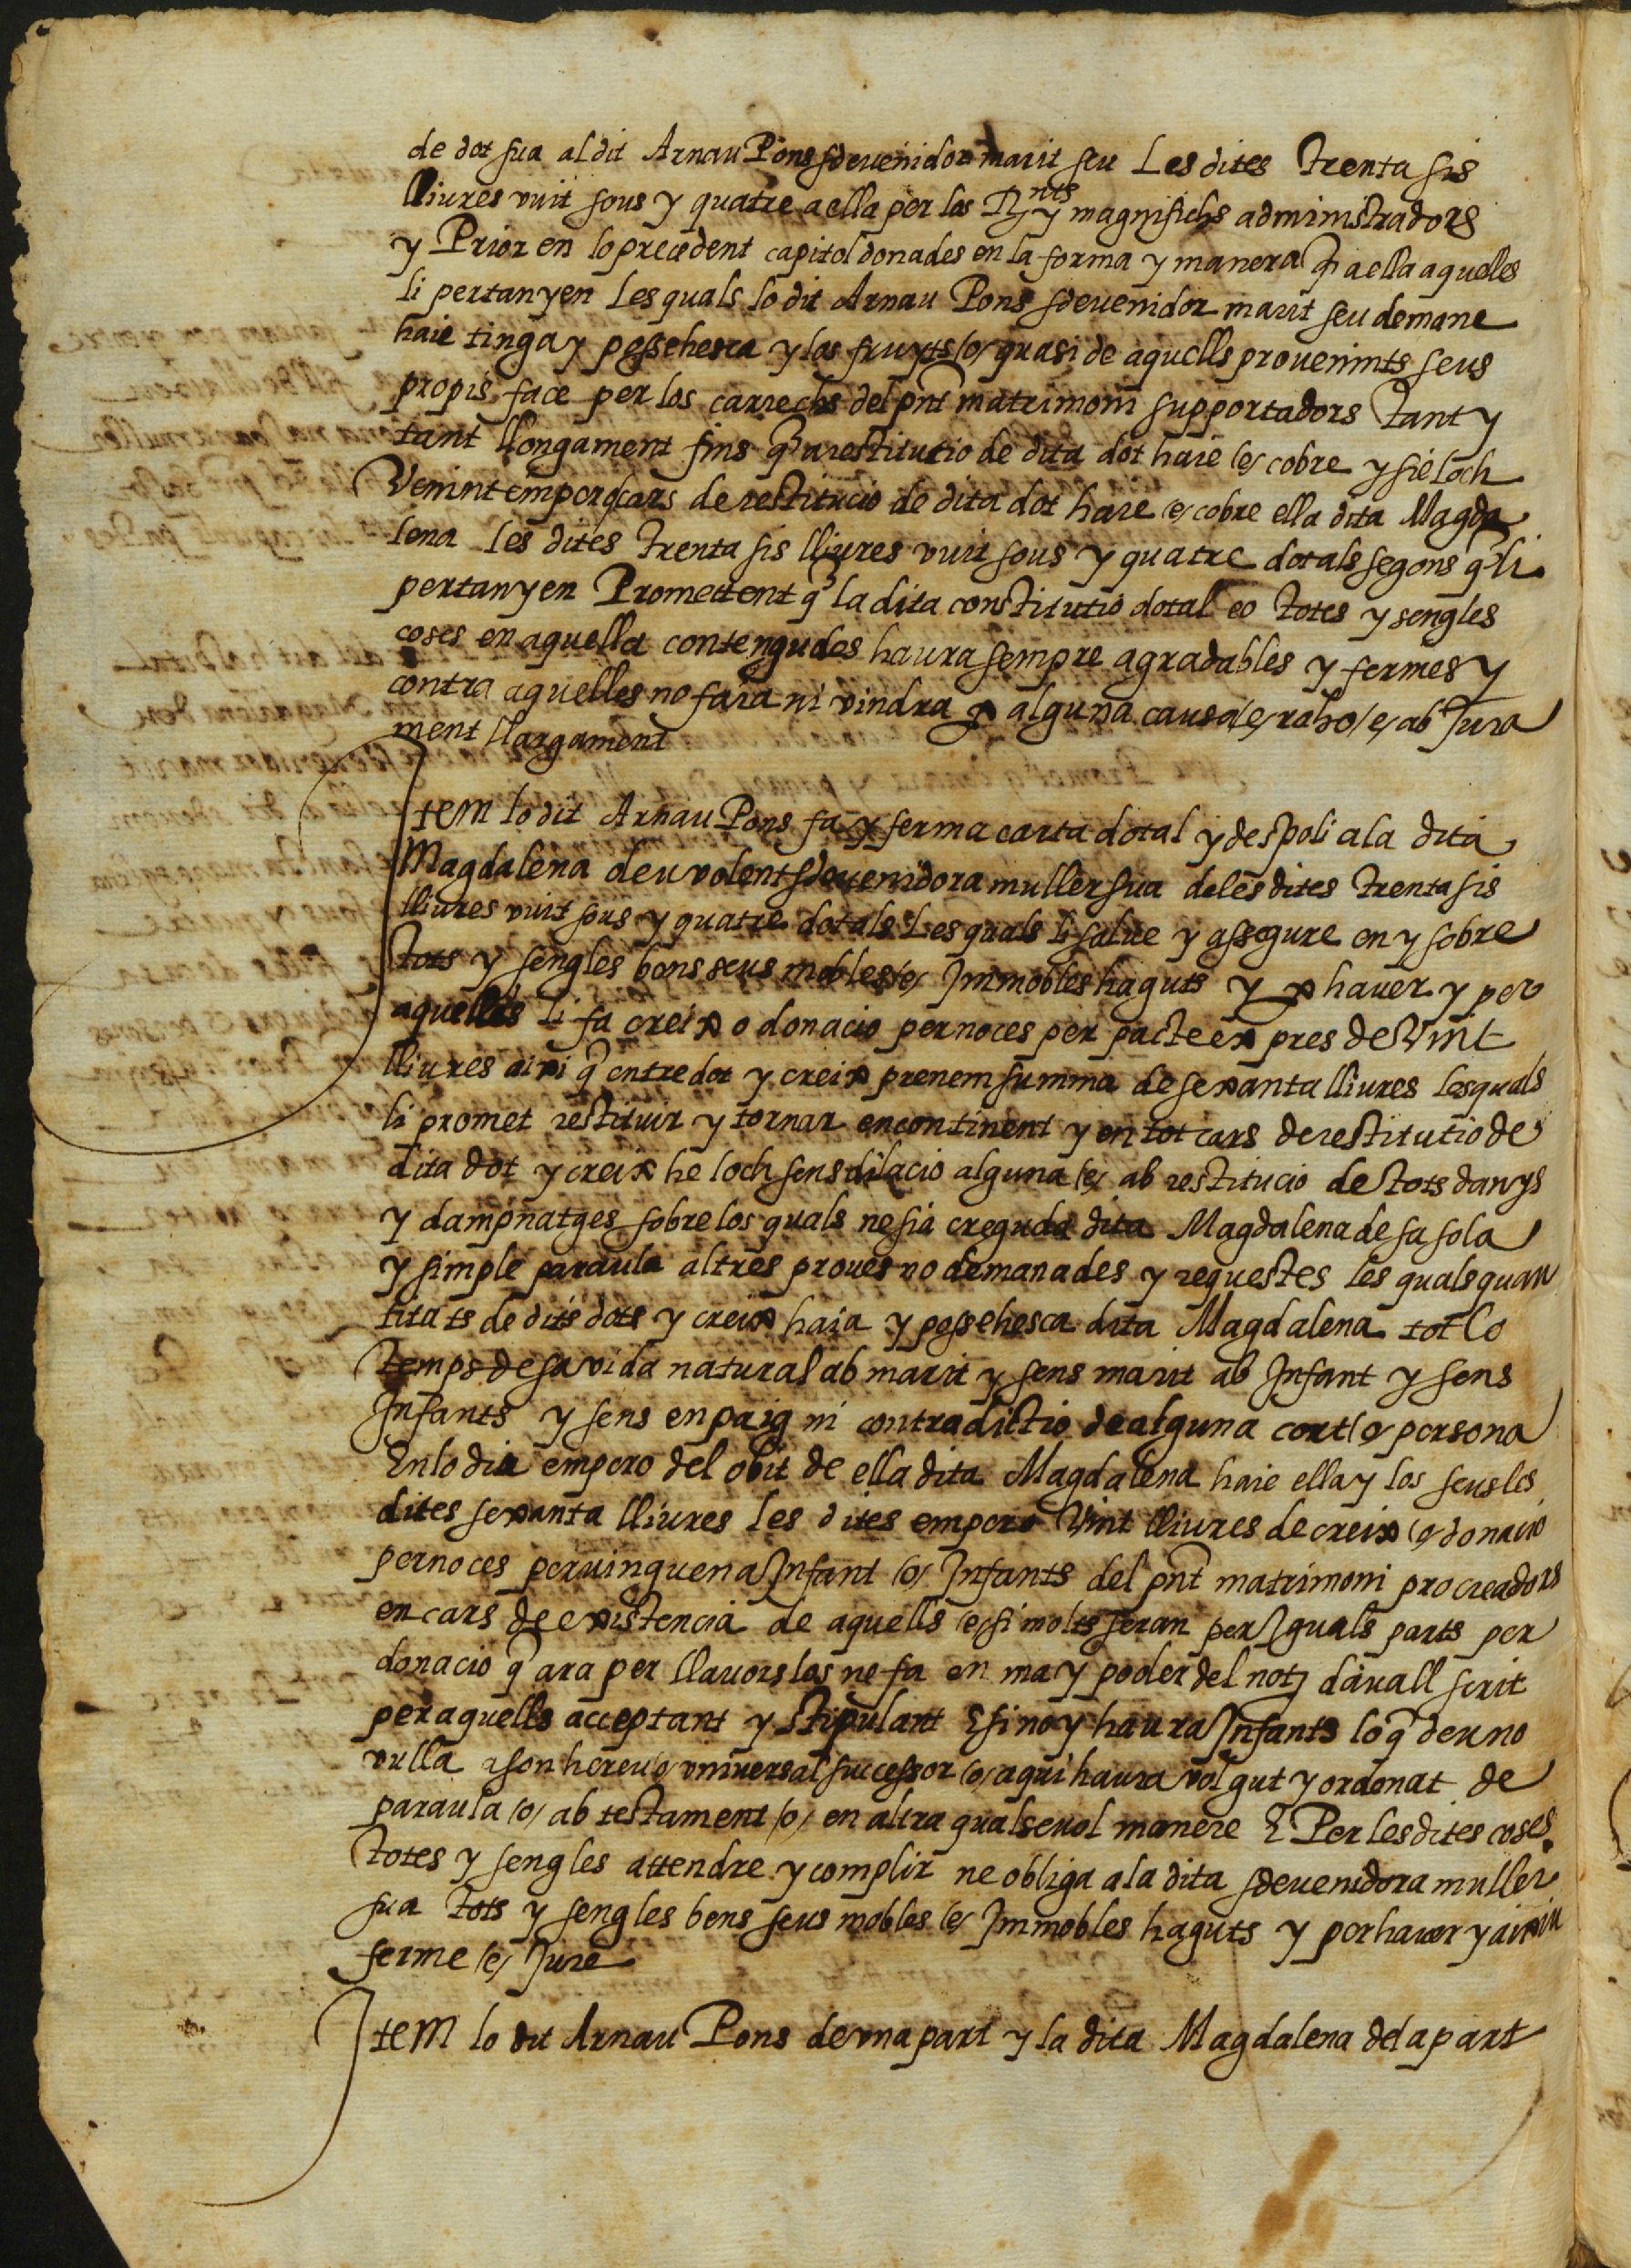 de dot sua al dit Arnau Pons sdevenidor marit seu Les dites trenta sis
lliures vuit sous y quatre a ella per los R.nts y magnifichs administradors
y Prior en lo precedent capitol donades en la forma y manera q̃ a ella aquelles
li pertanyen Les quals lo dit Arnau Pons sdevenidor marit seu demane
haie tinga y possehesca y los fruyts (e) quasi de aquells provenints seus
propis face per los carrechs del pñt matrimoni supportadors tant y
tant llongament fins q̃ restitutio de dita dot haie (e) cobre y sie loch
Venint empero cars de restitucio de dita dot haie (e) cobre ella dita Magda
lena Les dites trenta sis lliures vuit sous y quatre dotals segons q̃ li
pertanyen Promettent q̃ la dita constitutio dotal eo totes y sengles
coses en aquella contengudes haura sempre agradables y fermes y
contra aquelles no fara ni vindra p alguna causa (e) raho (e) ab Jura
ment llargament
Item lo dit Arnau Pons fa y ferma carta dotal y despoli a la dita
Magdalena deuvolent sdevenidora muller sua de les dites trenta sis
lliures vuit sous y quatre dotals Les quals li salve y assegure en y sobre
tots y sengles bens seus mobles (e) Immobles haguts y p haver y per
aquelles li fa creix o donacio per noces per pacte expres de Vint
lliures aixi q̃ entre dot y creix prenem summa de sexanta lliures les quals
li promet restituir y tornar encontinent y en tot cars de restitutio de
dita dot y creix he loch sens dilacio alguna (e) ab restitucio de tots danys
y dampnatges sobre los quals ne sia creguda dita Magdalena de sa sola
y simple paraula altres proves no demanades y requestes les quals quan
titats de dits dots y creix haia y possehesca dita Magdalena tot lo
temps de sa vida natural ab marit y sens marit ab Infant y sens
Infants y sens enpaig ni contradictio de alguna cort (o) persona
En lo dia empero del obit de ella dita Magdalena haie ella y los seus les
dites sexanta lliures les dites empero Vint lliures de creix (o) donacio
per noces pervinguen a Infant (o) Infants del pñt matrimoni procreadors
en cars de existencia de aquells (e) si molts seran per Iguals parts per
donacio q̃ ara per llavors los ne fa en ma y poder del not. davall scrit
per aquells acceptant y stipulant E si no y haura Infants lo q̃ deu no
vulla a son hereu (o) universal successor (o) a qui haura volgut y ordenat de
paraula (o) ab testament (o) en altra qualsevol manere E Per les dites coses
totes y sengles attendre y complir ne obliga a la dita sdevenidora muller
sua tots y sengles bens seus mobles (e) Immobles haguts y per haver y aixiu
ferme (e) Jure
Item lo dit Arnau Pons de una part y la dita Magdalena de la part